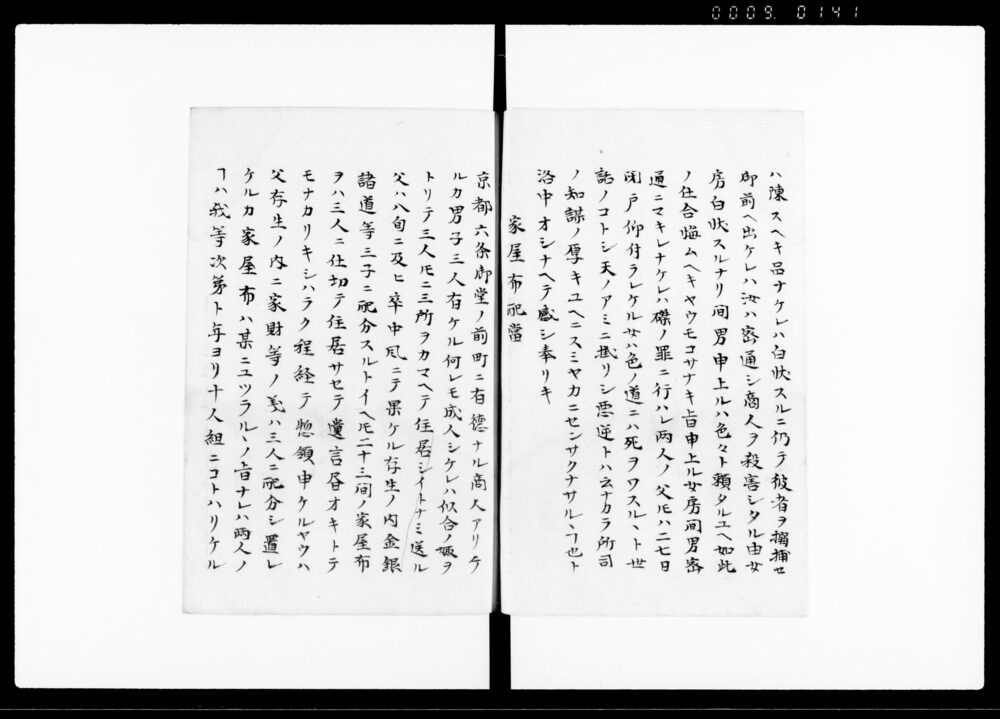 0009.0141
ハ陳スヘキ品ナケレハ白状スルニ仍テ彼者ヲ搦捕セ
御前ヘ出ケレハ汝ハ密通シ商人ヲ殺害シタル由女
房白状スルナリ間男申上ルハ色々ト頼タルユヘ如此
ノ仕合悔ムヘキヤウモコサナキ旨申上ル女房間男密
通ニマキレナケレハ磔ノ罪ニ行ハレ両人ノ父ハ二七日
閉戸仰付ラレケル女ハ色ノ道ニハ死ヲワスルヽト世
話ノコトシ天ノアミニ掛リシ悪逆トハ云ナカラ所司
ノ知謀ノ厚キユヘニスミヤカニセンサクナサルヽヿ也ト
洛中オシナヘテ感シ奉リキ
家屋布配當
京都六条御堂ノ前町ニ有徳ナル商人アリケ
ルカ男子三人有ケル何レモ成人シケレハ似合ノ娵ヲ
トリテ三人𪜈ニ三所ヲカマヘテ住居シイトナミ送ル
父ハ八旬ニ及ヒ卒中風ニテ果ケル存生ノ内金銀
諸道等三子ニ配分スルトイヘ𪜈二十三間ノ家屋布
ヲハ三人ニ仕切テ住居サセテ遺言昏オキトテ
モナカリキシハラク程経テ惣領申ケルヤウハ
父存生ノ内ニ家財等ノ義ハ三人ニ配分シ置レ
ケルカ家屋布ハ某ニユツラルヽノ旨ナレハ両人ノ
ヿハ我等次第ト年ヨリ十人組ニコトハリケル